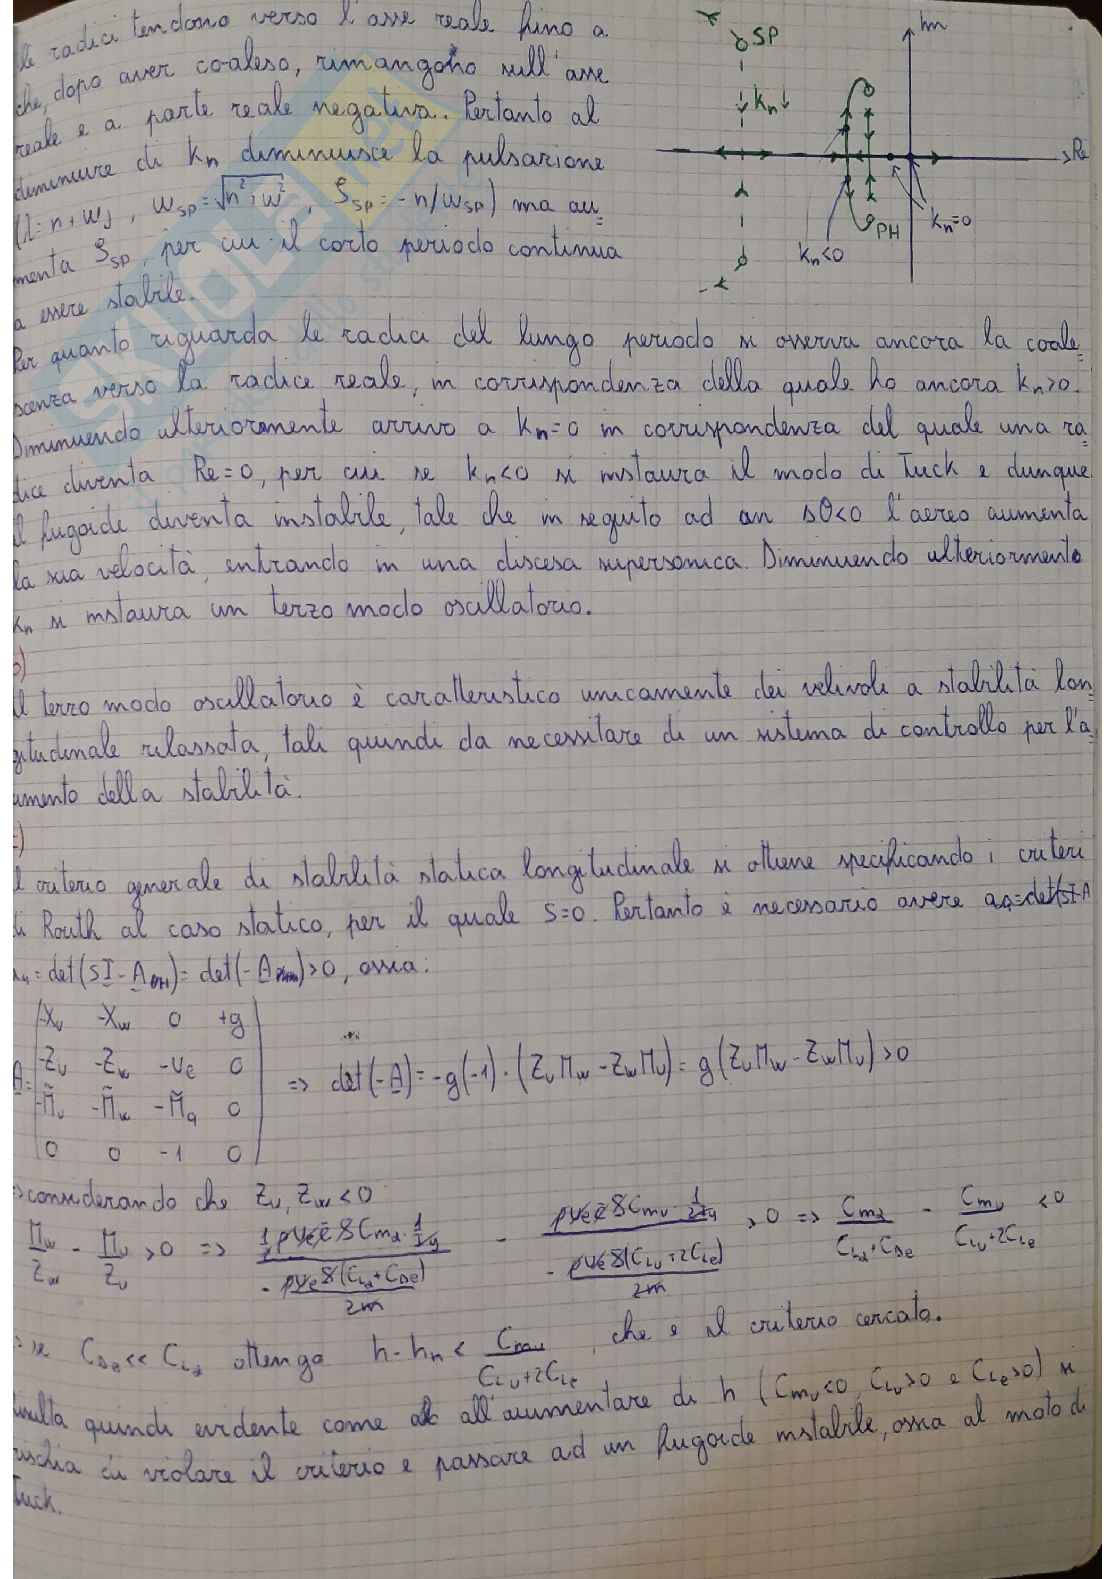 le radici tendono verso l'asse reale fino a
che, dopo aver coaleso, rimangono sull'asse
reale e a parte reale negativa. Pertanto al
diminuire di Kn diminuisce la pulsazione
(λ=n+ωj, ωSP=√n²+ω², ζSP=-n/ωSP) ma au=
menta ζSP, per cui il corto periodo continua
a essere stabile.
Im
SP
Kn↓
Re
Kn=0
PH
Kn<0
Per quanto riguarda le radici del lungo periodo si osserva ancora la coale=
scenza verso la radice reale, in corrispondenza della quale ho ancora Kn>0.
Diminuendo ulteriormente arrivo a Kn=0 in corrispondenza del quale una ra=
dice diventa Re=0, per cui se Kn<0 si instaura il modo di Tuck e dunque
il fugoide diventa instabile, tale che in seguito ad un Δθ<0 l'aereo aumenta
la sua velocità, entrando in una discesa supersonica. Diminuendo ulteriormente
Kn si instaura un terzo modo oscillatorio.
b)
Il terzo modo oscillatorio è caratteristico unicamente dei velivoli a stabilità lon=
gitudinale rilassata, tali quindi da necessitare di un sistema di controllo per l'a=
umento della stabilità.
c)
Il criterio generale di stabilità statica longitudinale si ottiene specificando i criteri
di Routh al caso statico, per il quale S=0. Pertanto è necessario avere
a4=det(SI-A)=det(-A)>0, ossia:
-Xu -Xw 0 +g
-Zu -Zw -Ue 0
-M̃u -M̃w -M̃q 0
0 0 -1 0
A= => det(-A)=-g(-1)·(ZuMw-ZwMu)=g(ZuMw-ZwMu)>0
=> considerando che Zu, Zw<0
Mw/Zw - Mu/Zu >0 => >0 => Cmα/(CLα+CDe) - Cmu/(CLu+2CLe) <0
=> se CDe<<CLα ottengo h-hn < Cmu/(CLu+2CLe), che è il criterio cercato.
Risulta quindi evidente come all'aumentare di h (Cmu<0, CLu>0 e CLe>0) si
rischia di violare il criterio e passare ad un fugoide instabile, ossia al moto di
Tuck.